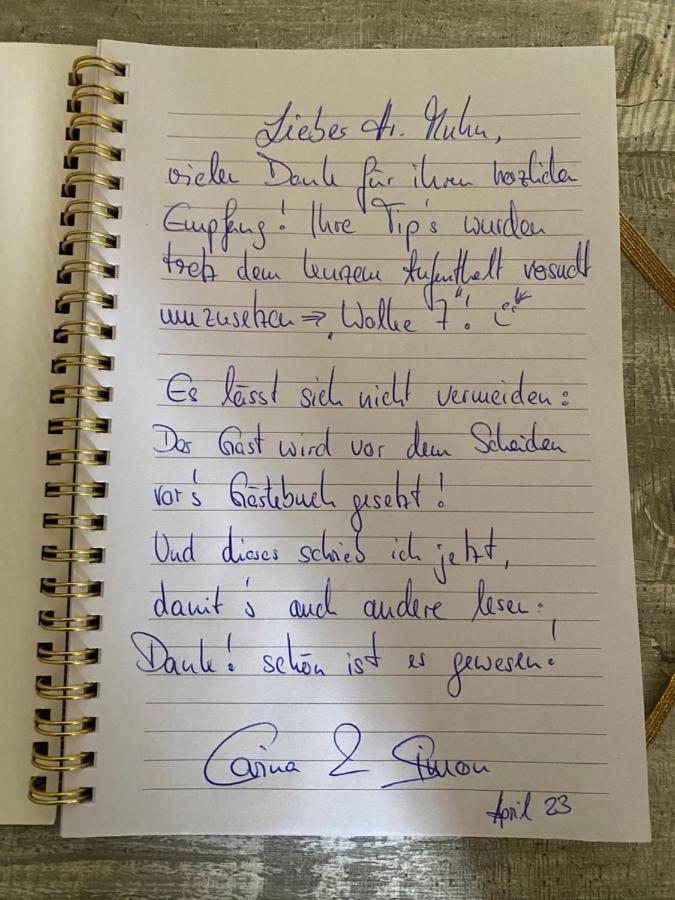 Lieber Hr. Kuhn,
vielen Dank für ihren herzlichen
Empfang! Ihre Tip's wurden
trotz dem kurzem Aufenthalt versucht
umzusetzen => "Wolke 7"!
Es lässt sich nicht vermeiden:
Der Gast wird vor dem Scheiden
vor's Gästebuch gesetzt!
Und dieses schrieb ich jetzt,
damit's auch andere lesen:
Danke! schön ist es gewesen!
Carina & Simon
April 23